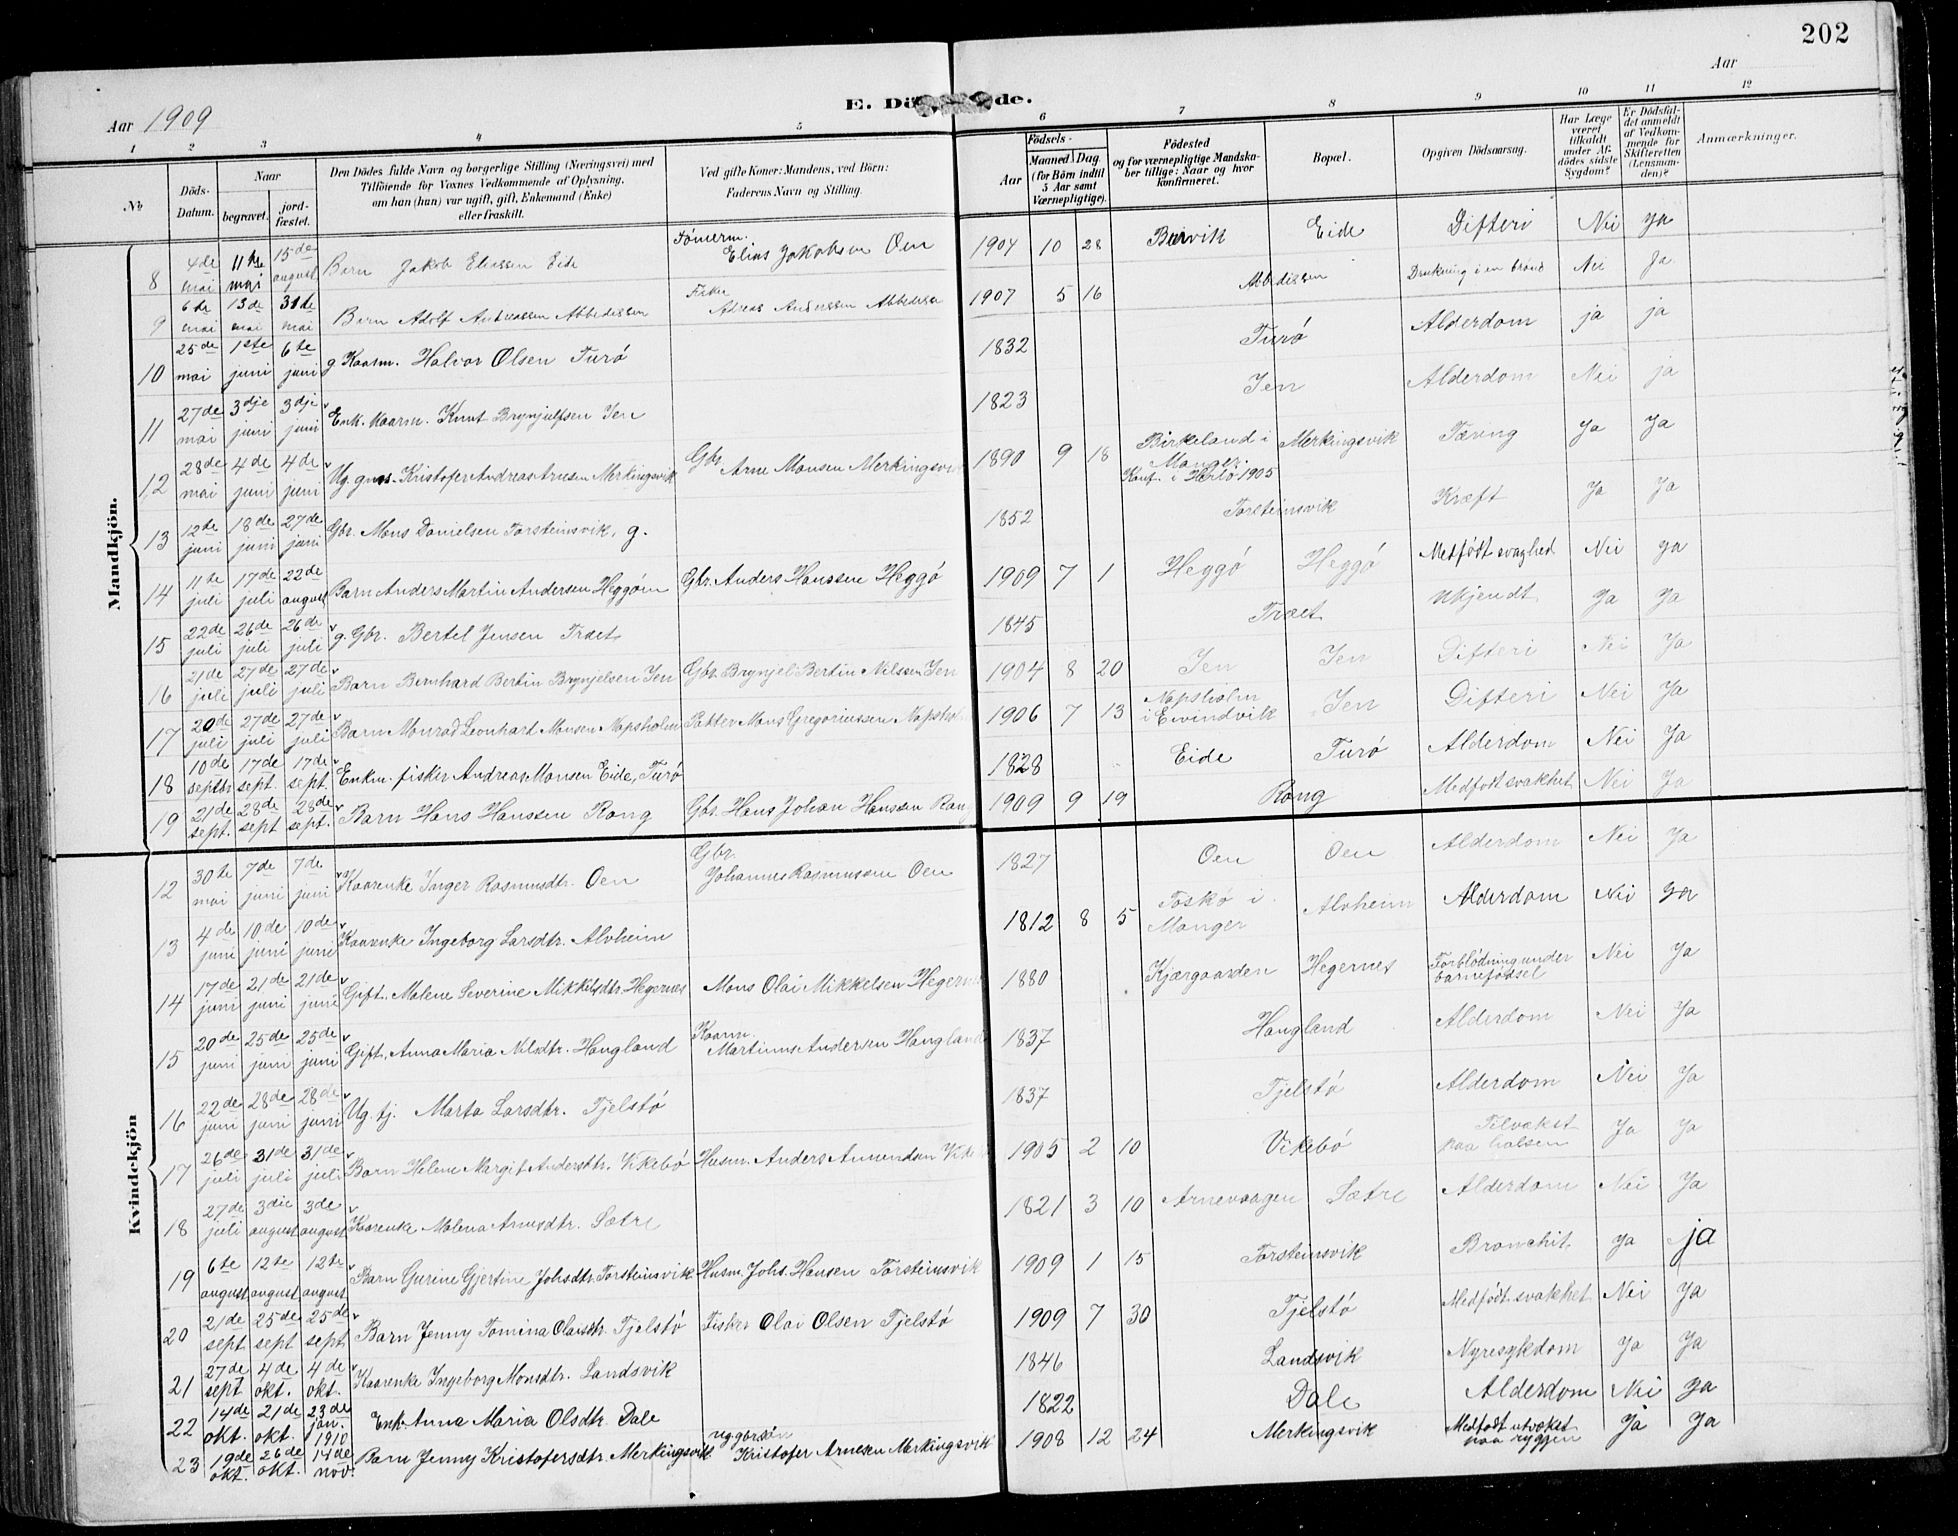 202
Aar 1909
E. Dö de.
Aar
1 2 3 4 5 6 7 8 9 10 11 12
№ | Döds-Datum. | Naar begravet. | jord-fæstet. | Den Dödes fulde Navn og borgerlige Stilling (Næringsvei) med Tilföiende for Voxnes Vedkommende af Oplysning, om han (hun) var ugift, gift, Enkemand (Enke) eller fraskilt. | Ved gifte Koner: Mandens, ved Börn: Faderens Navn og Stilling. | Födsels- Aar | Maaned | Dag. (for Börn indtil 5 Aar samt Værnepligtige). | Födested og for værnepligtige Mandskaber tillige: Naar og hvor konfirmeret. | Bopæl. | Opgiven Dödsaarsag. | Har Læge været tilkaldt under Afdödes sidste Sygdom? | Er Dödsfaldet anmeldt af Vedkommende for Skifteretten (Lensmanden)? | Anmærkninger.
Mandkjön.
8 | 4de mai | 11te mai | 15de august | Barn Jakob Eliassen Eide | Tømerm. Elias Jakobsen Oen | 1904 | 10 | 28 | Burvik | Eide | Difteri | Nei | Ja
9 | 6te mai | 13de mai | 31de mai | Barn Adolf Andreassen Abbedissen | Fisker Adreas Anderssen Abbedissen | 1907 | 5 | 16 | Abbedissen | Drukning i en brønd | Nei | Ja
10 | 25de mai | 1ste juni | 6te juni | g. Kaarm. Halvor Olsen Turø | 1832 | Turø | Alderdom | ja | ja
11 | 27de mai | 3dje juni | 3dje juni | Enk. Kaarm. Knut Brynjulfsen Jen | 1823 | Jen | Alderdom | Nei | ja
12 | 28de mai | 4de juni | 4de juni | Ug. gbrs. Kristofer Andreas Arnesen Merkingsvik | Gbr. Arne Monsen Merkingsvik | 1890 | 9 | 18 | Birkeland i Manger. Konf. i Hærlø 1905 | Merkingsvik | Tæring | Ja | Ja
13 | 12te juni | 18de juni | 27de juni | Gbr. Mons Danielsen Torsteinsvik, g. | 1852 | Torsteinsvik | Kræft | Ja | Ja
14 | 11te juli | 17de juli | 22de august | Barn Anders Martin Andersen Heggøen | Gbr. Anders Hanssen Heggø | 1909 | 7 | 1 | Heggø | Heggø | Medfødt svaghed | Nei | ja
15 | 22de juli | 26de juli | 26de juli | g. Gbr. Bertel Jensen Træet | 1845 | Træet | Ukjendt | Ja | Ja
16 | 21de juli | 27de juli | 27de juli | Barn Bernhard Bertin Brynjelsen Jen | Gbr. Brynjel Bertin Nilssen Jen | 1904 | 8 | 20 | Jen | Jen | Difteri | Nei | Ja
17 | 20de juli | 27de juli | 27de juli | Barn Monrad Leonhard Monsen Napsholm | Fatter Mons Gregoriussen Napsholm | 1906 | 7 | 13 | Napsholm i Eivindvik | Jen | Difteri | Nei | Ja
18 | 10de septbr | 17de sept. | 17de sept. | Enkm. fisker Andreas Monsen Eide, Turø | 1828 | Eide | Turø | Alderdom | Nei | Ja
19 | 21de sept. | 28de sept | 28de sept. | Barn Hans Hanssen Rong | Gbr. Hans Johan Hanssen Rong | 1909 | 9 | 19 | Rong | Medfødt svakhet | Nei | Ja
Kvindekjön
12 | 30te mai | 7de juni | 7de juni | Kaarenke Inger Rasmusdtr. Oen | Gbr. Johannes Rasmussen Oen | 1827 | Oen | Oen | Alderdom | Nei | Ja
13 | 4de juni | 10de juni | 10de juni | Kaarenke Ingeborg Larsdtr. Alvheim | 1812 | 8 | 5 | Toskø i Manger | Alvheim | Alderdom | Nei | Ja
14 | 17de juni | 21de juni | 21de juni | Gift. Malene Severine Mikkelsdtr. Hegernes | Mons Olai Mikkelsen Hegernes | 1880 | Kjærgaarden | Hegernes | Forblødning under barnefødsel | Nei | Ja
15 | 20de juni | 25de juni | 25de juni | Gift. Anna Maria Nilsdtr. Haugland | Kaarm. Martinus Andersen Haugland | 1837 | Haugland | Alderdom | Nei | Ja
16 | 22de juni | 28de juni | 28de juni | Ug. tj. Marta Larsdtr. Tjelstø | 1837 | Tjelstø | Alderdom | Nei | Ja
17 | 26de juli | 31de juli | 31de juli | Barn Helene Margit Andersdtr. Vikebø | Husm. Anders Amundsen Vikebø | 1905 | 2 | 10 | Vikebø | Tilvækst paa halsen | Ja | Ja
18 | 27de juli | 3die august | 3de august | Kaarenke Malena Arnesdtr. Sætre | 1821 | 3 | 10 | Arnevaagen | Sætre | Alderdom | Nei | Ja
19 | 6te august | 12te august | 12te august | Barn Gurine Gjertine Johsdtr. Torsteinsvik | Husm. Johs. Hansen Torsteinsvik | 1909 | 1 | 15 | Torsteinsvik | Bronchit | Ja | ja
20 | 21de sept | 25de sept | 25de sept | Barn Jenny Tomina Olaisdtr. Tjelstø | Fisker Olai Olsen Tjelstø | 1909 | 7 | 30 | Tjelstø | Medfødt svakhet | Nei | Ja
21 | 27de sept | 4de okt. | 4de okt. | Kaarenke Ingeborg Monsdtr. Landsvik | 1846 | Landsvik | Nyresykdom | Ja | Ja
22 | 14de okt. | 21de okt. | 23de jan. 1910 | Enk. Anna Maria Olsdtr. Dale | 1822 | Dale | Alderdom | Nei | Ja
23 | 19de okt. | 26de okt | 14de nov. | Barn Jenny Kristofersdtr. Merkingsvik | ug. gbrsøn Kristofer Arnesen Merkingsvik | 1908 | 12 | 24 | Merkingsvik | Medfødt utvækst paa ryggen | Ja | Ja